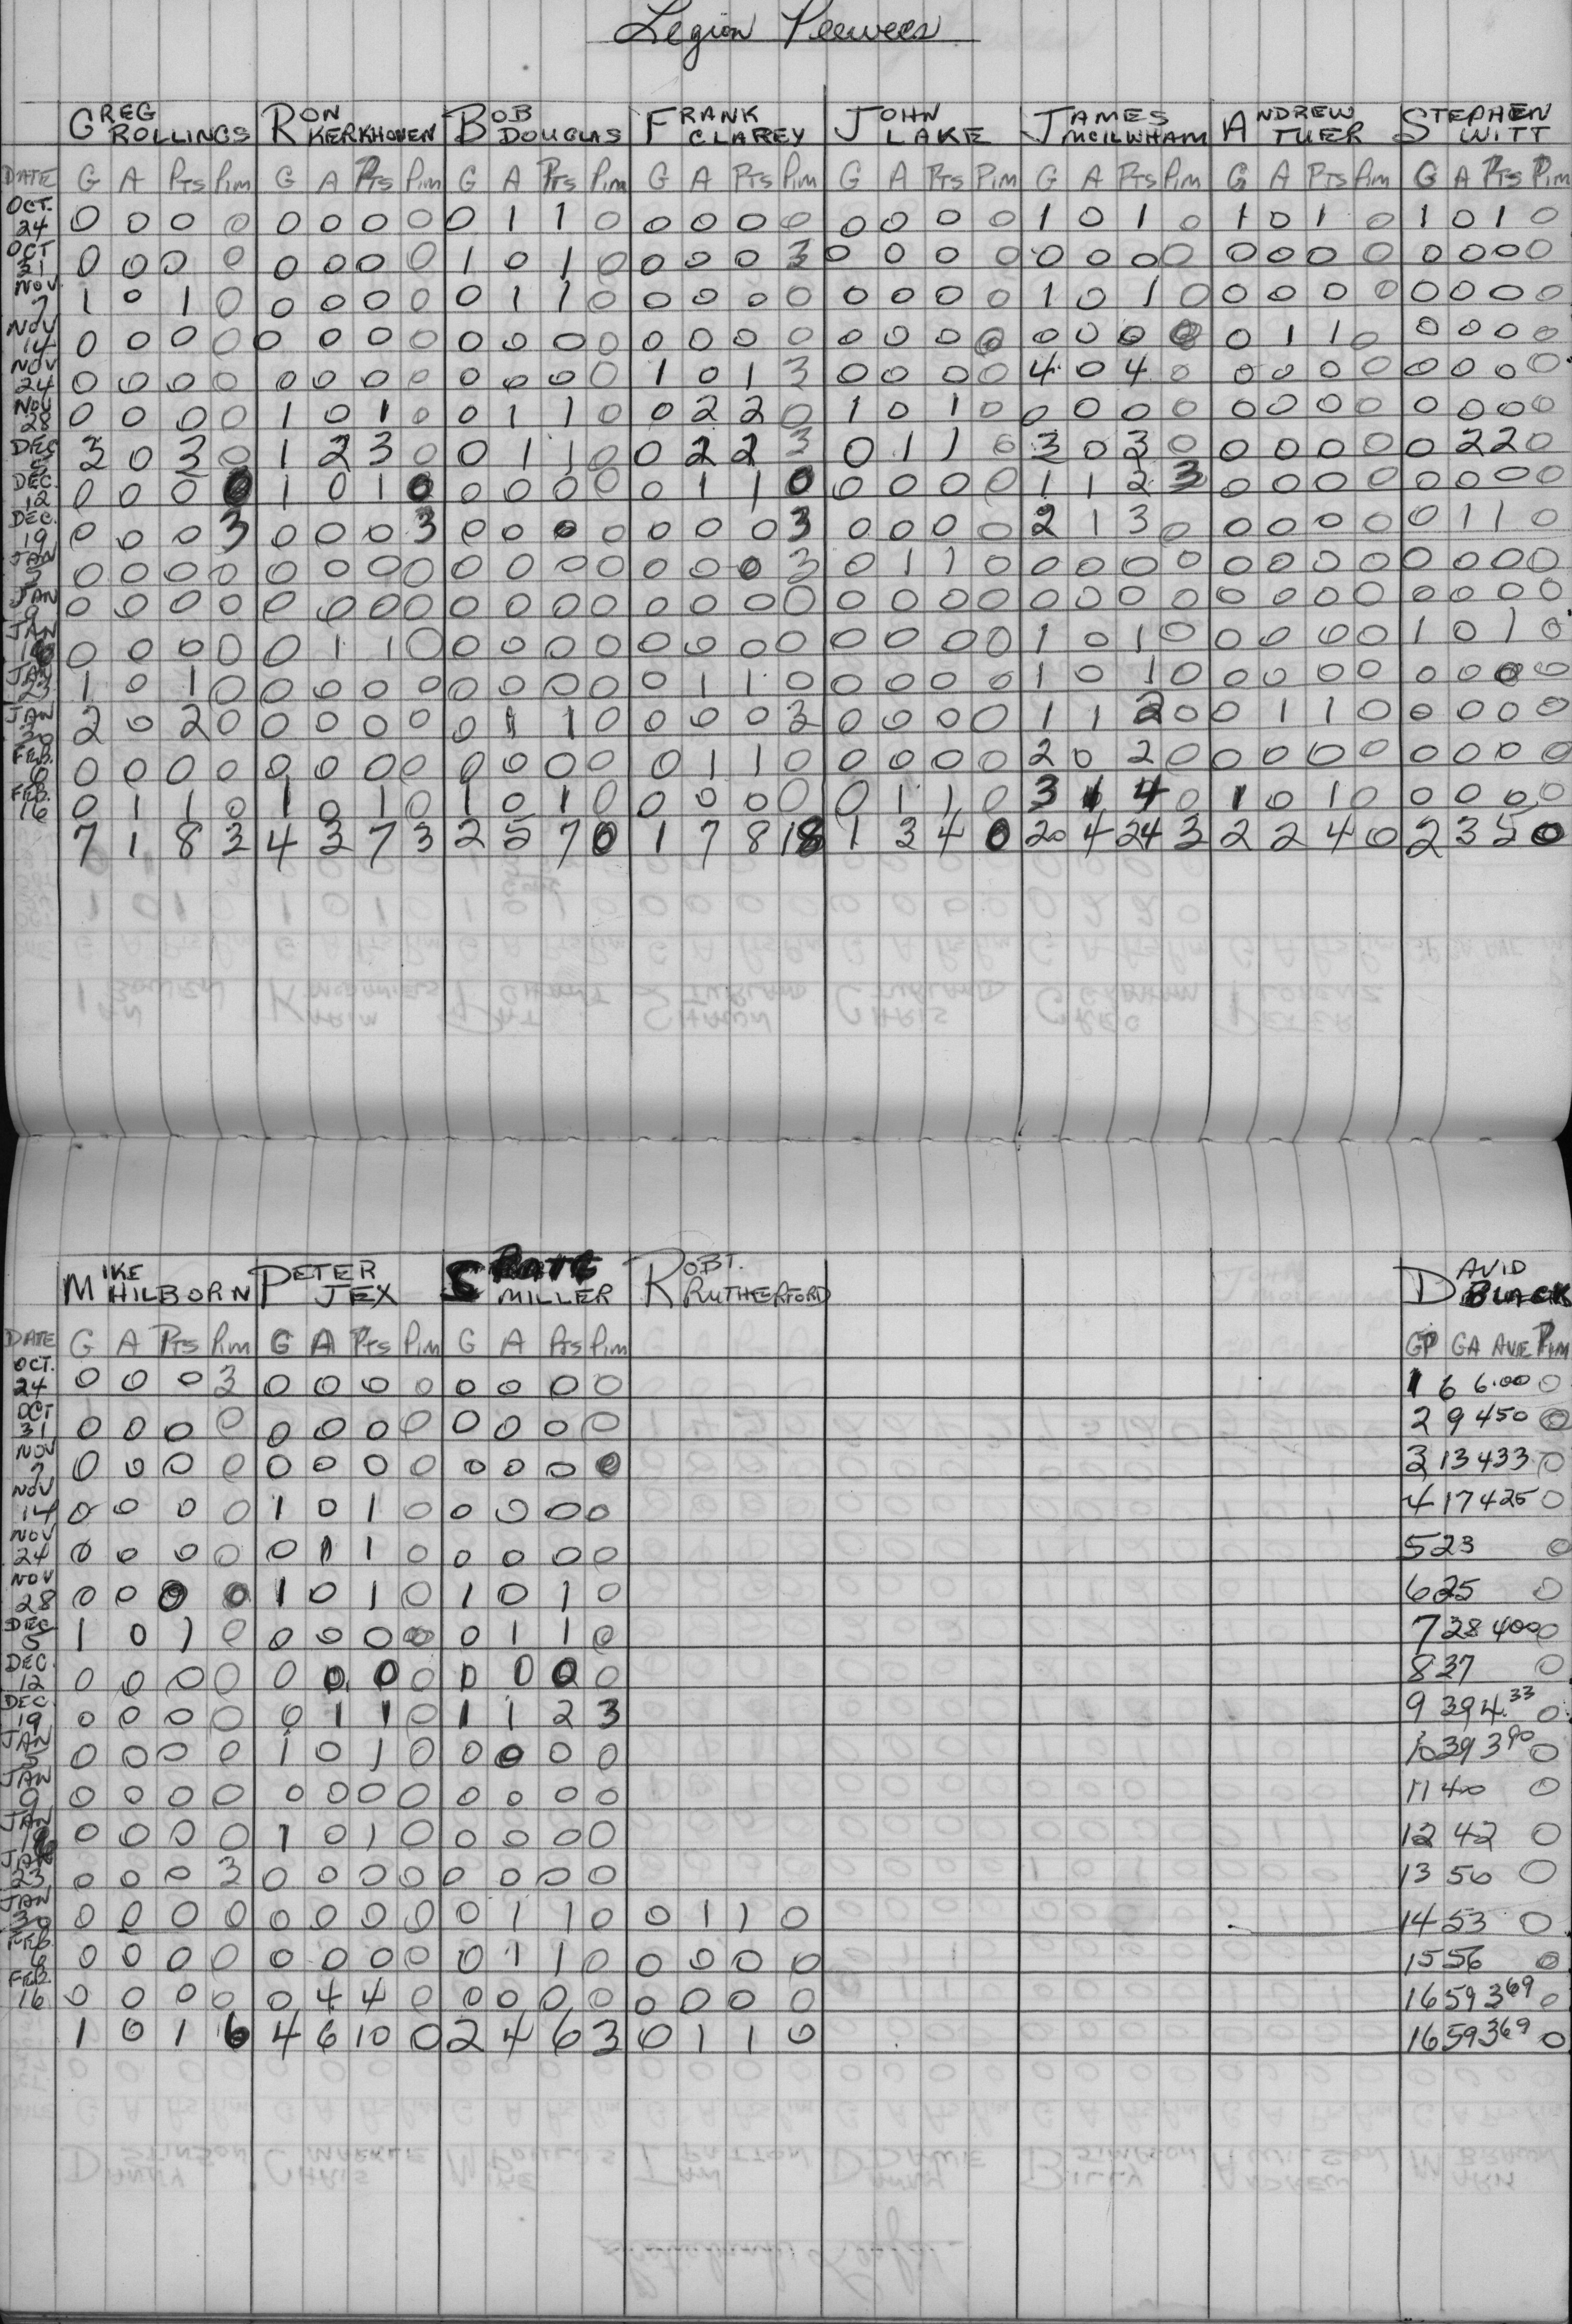 Legion Peewees
GREG ROLLINGS RON KERKHOVEN BOB DOUGLAS FRANK CLAREY JOHN LAKE JAMES MCILWHAM ANDREW TUER STEPHEN WITT
DATE G A Pts Pim G A Pts Pim G A Pts Pim G A Pts Pim G A Pts Pim G A Pts Pim G A Pts Pim G A Pts Pim
OCT. 24 0 0 0 0 0 0 0 0 0 1 1 0 0 0 0 0 0 0 0 0 1 0 1 0 1 0 1 0 1 0 1 0
OCT 31 0 0 0 0 0 0 0 0 1 0 1 0 0 0 0 3 0 0 0 0 0 0 0 0 0 0 0 0 0 0 0 0
NOV 7 1 0 1 0 0 0 0 0 0 1 1 0 0 0 0 0 0 0 0 0 1 0 1 0 0 0 0 0 0 0 0 0
NOV 14 0 0 0 0 0 0 0 0 0 0 0 0 0 0 0 0 0 0 0 0 0 0 0 0 0 1 1 0 0 0 0 0
NOV 24 0 0 0 0 0 0 0 0 0 0 0 0 1 0 1 3 0 0 0 0 4 0 4 0 0 0 0 0 0 0 0 0
NOV 28 0 0 0 0 1 0 1 0 0 1 1 0 0 2 2 0 1 0 1 0 0 0 0 0 0 0 0 0 0 0 0 0
DEC 5 3 0 3 0 1 2 3 0 0 1 1 0 0 2 2 3 0 1 1 0 3 0 3 0 0 0 0 0 0 2 2 0
DEC. 12 0 0 0 0 1 0 1 0 0 0 0 0 0 1 1 0 0 0 0 0 1 1 2 3 0 0 0 0 0 0 0 0
DEC. 19 0 0 0 3 0 0 0 3 0 0 0 0 0 0 0 3 0 0 0 0 2 1 3 0 0 0 0 0 0 1 1 0
JAN 5 0 0 0 0 0 0 0 0 0 0 0 0 0 0 0 3 0 1 1 0 0 0 0 0 0 0 0 0 0 0 0 0
JAN 9 0 0 0 0 0 0 0 0 0 0 0 0 0 0 0 0 0 0 0 0 0 0 0 0 0 0 0 0 0 0 0 0
JAN 0 0 0 0 0 1 1 0 0 0 0 0 0 0 0 0 0 0 0 0 1 0 1 0 0 0 0 0 1 0 1 0
JAN 23 1 0 1 0 0 0 0 0 0 0 0 0 0 1 1 0 0 0 0 0 1 0 1 0 0 0 0 0 0 0 0 0
JAN 30 2 0 2 0 0 0 0 0 0 1 1 0 0 0 0 3 0 0 0 0 1 1 2 0 0 1 1 0 0 0 0 0
FEB. 6 0 0 0 0 0 0 0 0 0 0 0 0 0 1 1 0 0 0 0 0 2 0 2 0 0 0 0 0 0 0 0 0
FEB. 16 0 1 1 0 1 0 1 0 1 0 1 0 0 0 0 0 0 1 1 0 3 1 4 0 1 0 1 0 0 0 0 0
7 1 8 3 4 3 7 3 2 5 7 0 1 7 8 18 1 3 4 0 20 4 24 3 2 2 4 0 2 3 5 0
MIKE HILBORN PETER JEX MILLER ROBT. RUTHERFORD DAVID BLACK
DATE G A Pts Pim G A Pts Pim G A Pts Pim GP GA AVE Pim
OCT. 24 0 0 0 3 0 0 0 0 0 0 0 0 1 6 6.00 0
OCT 31 0 0 0 0 0 0 0 0 0 0 0 0 2 9 450 0
NOV 7 0 0 0 0 0 0 0 0 0 0 0 0 3 13 433 0
NOV 14 0 0 0 0 1 0 1 0 0 0 0 0 4 17 425 0
NOV 24 0 0 0 0 0 1 1 0 0 0 0 0 5 23 0
NOV 28 0 0 0 0 1 0 1 0 1 0 1 0 6 25 0
DEC 5 1 0 1 0 0 0 0 0 0 1 1 0 7 28 400 0
DEC. 12 0 0 0 0 0 0 0 0 0 0 0 0 8 37 0
DEC. 19 0 0 0 0 0 1 1 0 1 1 2 3 9 39 4.33 0
JAN 5 0 0 0 0 1 0 1 0 0 0 0 0 10 39 390 0
JAN 9 0 0 0 0 0 0 0 0 0 0 0 0 11 40 0
JAN 0 0 0 0 1 0 1 0 0 0 0 0 12 42 0
JAN 23 0 0 0 3 0 0 0 0 0 0 0 0 13 50 0
JAN 30 0 0 0 0 0 0 0 0 0 1 1 0 0 1 1 0 14 53 0
FEB 6 0 0 0 0 0 0 0 0 0 1 1 0 0 0 0 0 15 56 0
FEB. 16 0 0 0 0 0 4 4 0 0 0 0 0 0 0 0 0 16 59 369 0
1 0 1 6 4 6 10 0 2 4 6 3 0 1 1 0 16 59 369 0